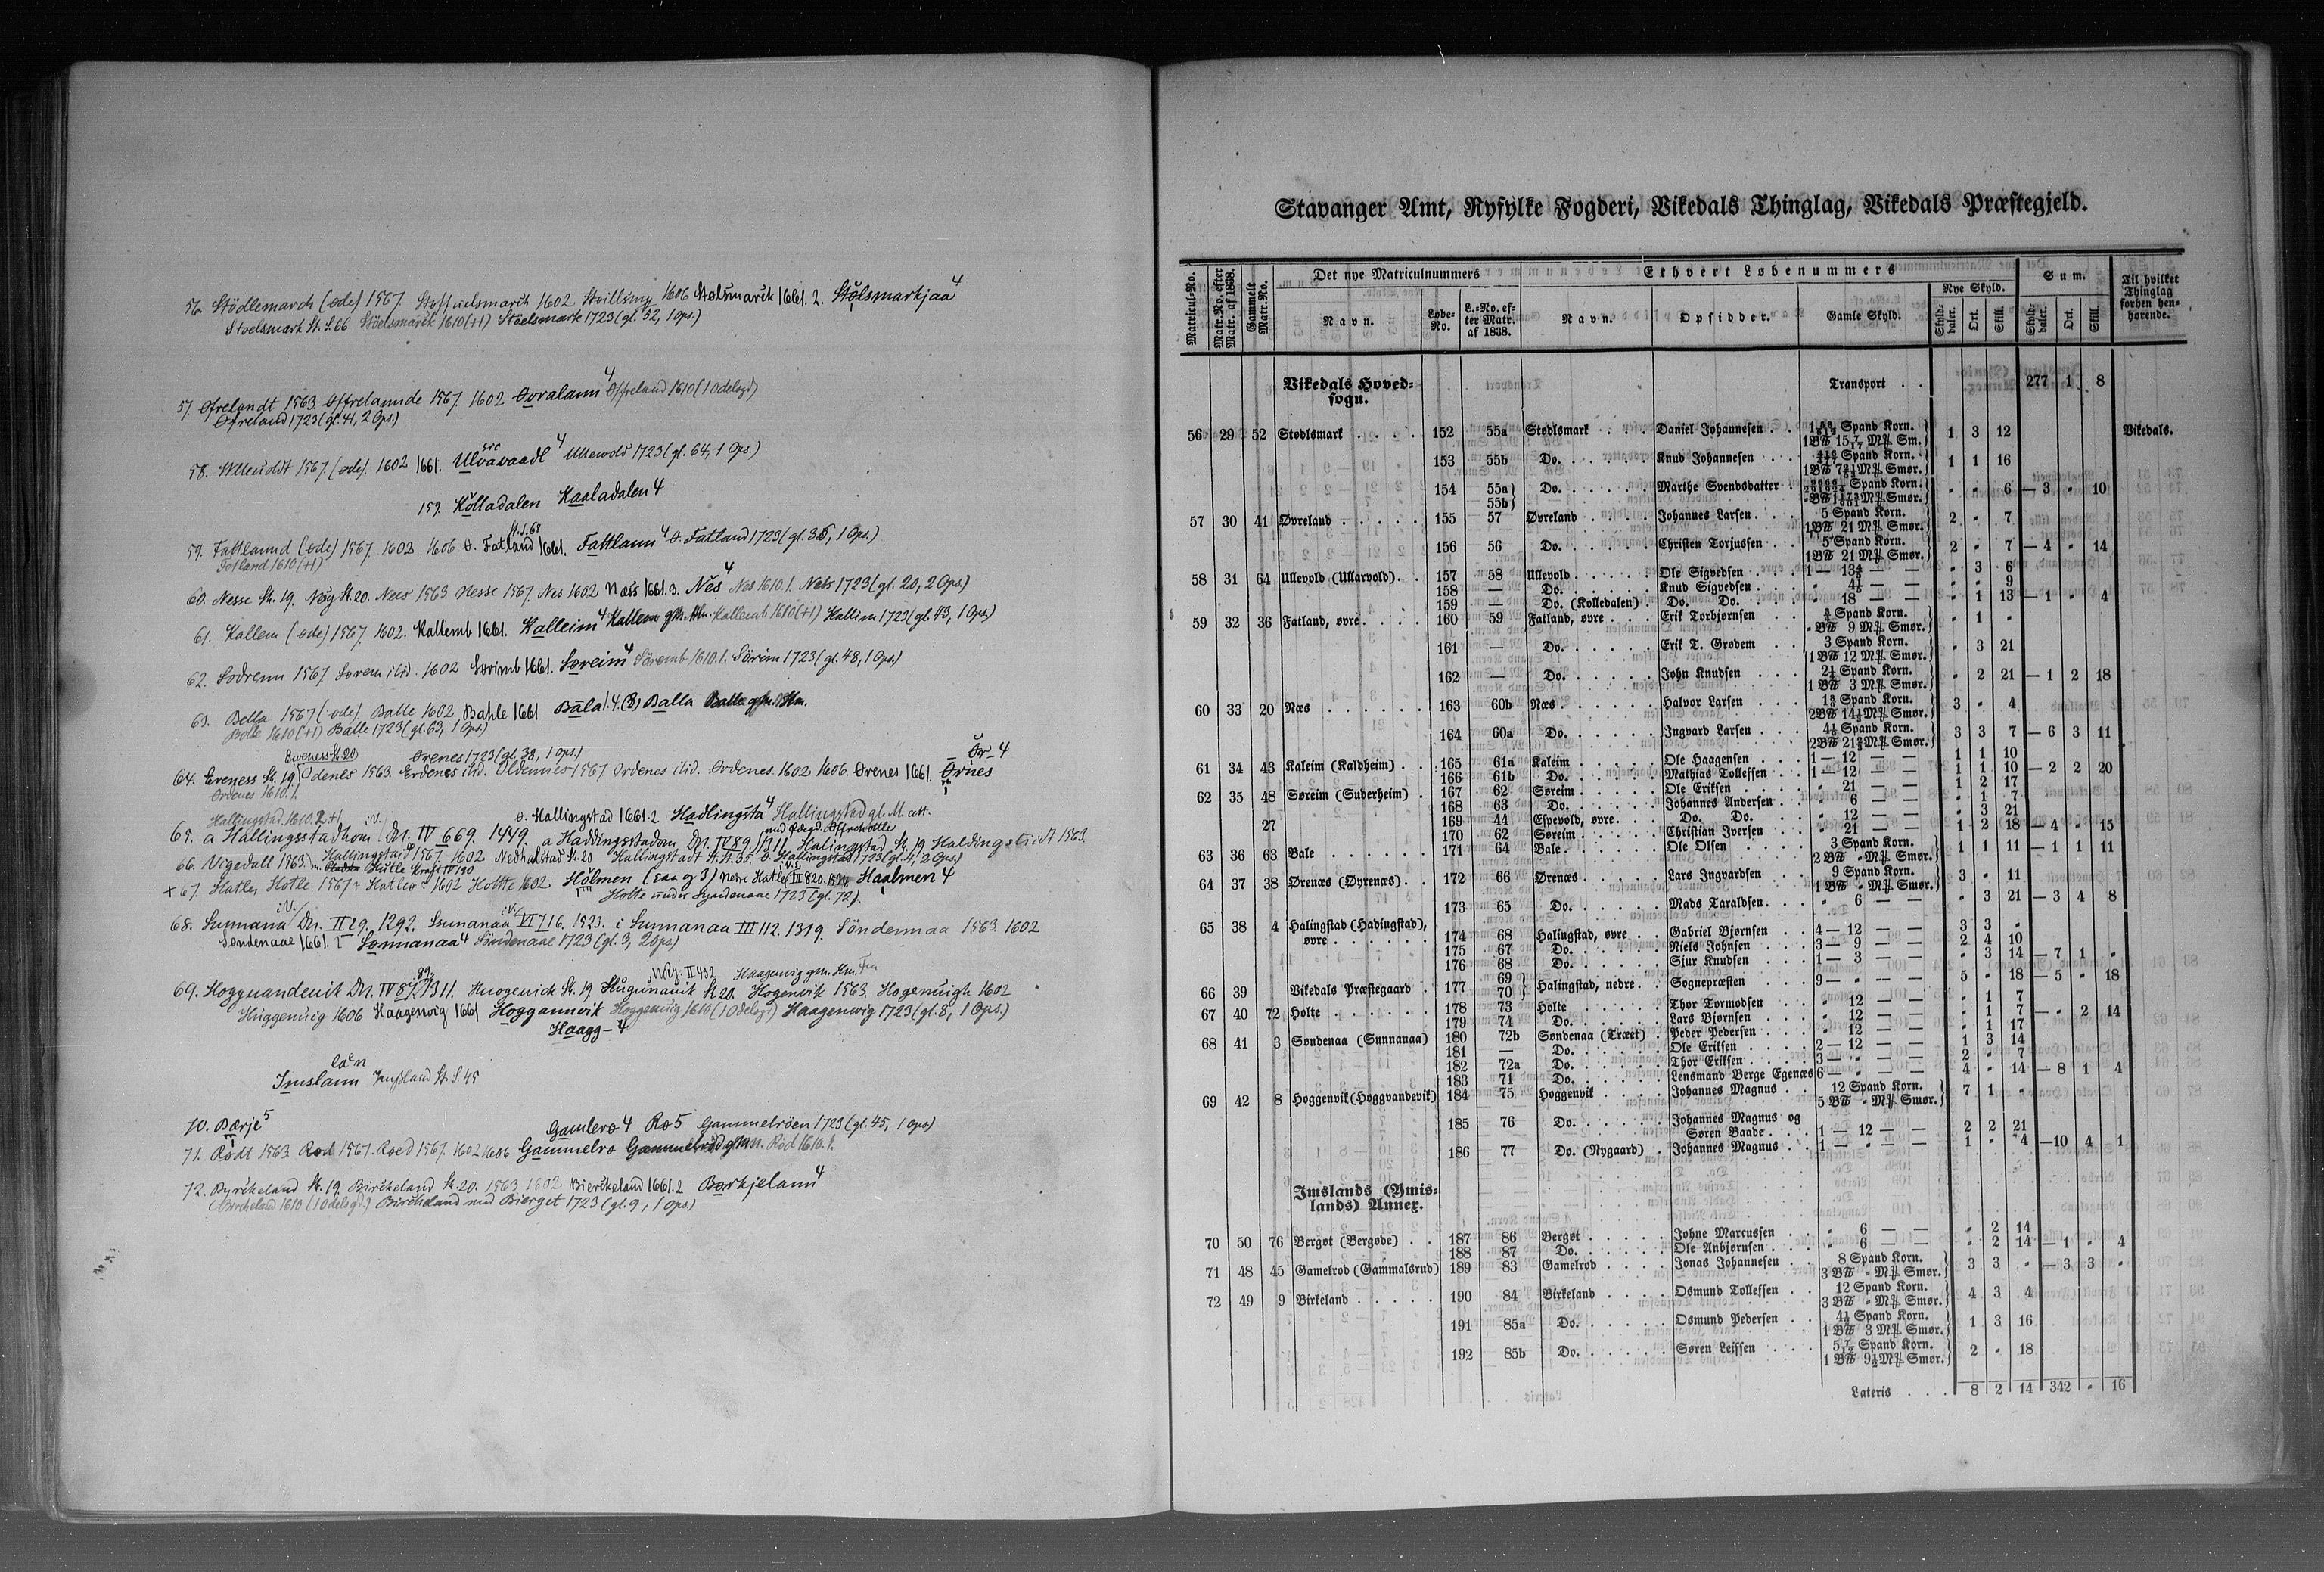 56. Stödlemarch (øde) 1567. 1602 1606 Stølsmarck 1661. 2. Stølsmarkjaa 4
Stoelsmark St. S. 66 Stöelsmarck 1610 (+1) Stöelsmark 1723 (gl. 52, 1 Ops.)
57. Øfrelandt 1563. Offrelannde 1567. 1602 Øvralann 4 Offreland 1610 (1 ødelagd)
Øfreland 1723 (gl. 41, 2 Ops.)
58. 1567. (øde). 1602 1661. Ulvavaadl 4 Ullewold 1723 (gl. 64, 1 Ops.)
159. Kölladalen Kaaladalen 4
59. Fattlannd (øde) 1567. 1602 1606 ø. Fatland 1661. Fattlann 4 ø. Fatland 1723 (gl. 36, 1 Ops.)
Fotland 1610 (+1)
60. Nesse St. 19. St. 20. Nees 1563 Nesse 1567. Nes 1602 Næs 1661. 3. Nes 4 Nes 1610. 1. Nees 1723 (gl. 20, 2 Ops.)
61. Kallem (øde) 1567. 1602. Kallemb 1661. Kalleim 4 Kallemb 1610 (+1) Kallim 1723 (gl. 43, 1 Ops.)
62. Sodrenn 1567 Sørem ibid. 1602 Sørimb 1661. Søreim 4 Söremb 1610. 1. Sörim 1723 (gl. 48, 1 Ops.)
63. Bella 1567 (øde) Balle 1602, Bahle 1661 Bala 1. 4. (3) Balla
Bolle 1610 (+1) Balle 1723 (gl. 63, 1 Ops.)
Ørenes 1723 (gl. 38, 1 Ops.)
64. Ereness St. 19. Odenes 1563. Erdenes ibid. 1567 Ordenes ibid. Ørdenes. 1602 1606. Ørenes 1661. Ørnes
Ordenes 1610. 1.
Hallingstad 1610. 2 +1 ø. Hallingstad 1661. 2 Hadlingsta 4 Hallingstad gl. M. att.
65. a Hallingsstadhom Dn. IV 669. 1449. a Haddingsstadom Dn. IV 89. 1311 Halingstad St. 19 Haldingstadt 1563.
66. Vigedall 1563. Hallingstad 1567. 1602 Nedhalstad St. 20 Hallingstadt St. S. 35. ø. Hallingstad 1723 (gl. 4, 2 Ops)
x 67. Hatler Hotle 1567. Hatleø 1602 Holtte 1602 Hölmen (saa og 3) Haalmen 4
Holte under Syndenaae 1723 (gl. 72).
68. Sunnana Dn. II 29. 1292. Sunanaa VI 716. 1523. i Sunnanaa III 112. 1319. Söndernaa 1563. 1602
Søndenaae 1661. 2 Sønnanaa 4 Söndenaae 1723 (gl. 3, 2 Ops)
69. Hogguandevik Dn. IV 87. 1311. St. 19 St. 20. Hogenvik 1563. Hogenuigh 1602
Huggenuig 1606 Haagenvig 1661 Hoggannvik Hoggenuig 1610 (1 ødelagt) Haagenwig 1723 (gl. 8, 1 Ops.)
Haagg- 4
lan
Imslann Imsland St. S. 45
70. Bærje 5
Gamlerø 4 Rø 5 Gammelröen 1723 (gl. 45, 1 Ops)
71. Rödt 1563 Rød 1567. Roed 1567. 1602 1606 Gammelrø Rød 1610. 1.
72. Byrckeland St. 19. Birckeland St. 20. 1563 1602. Bierckeland 1661. 2 Børkjelann 4
Birckeland 1610 (1 ødelagd.) Birckeland med Bierget 1723 (gl. 9, 1 Ops)
Stavanger Amt, Ryfylke Fogderi, Vikedals Thinglag, Vikedals Præstegjeld.
Matricul-No. Matr.No. efter Matr. af 1838. Gammelt Matr.No. Det nye Matriculnummers Ethvert Løbenummers Sum. Til hvilket Thinglag forhen henhørende.
Navn. Løbe-No. L.-No. efter Matr. af 1838. Navn. Opsidder. Gamle Skyld. Nye Skyld. Skylddaler. Ort. Skill. Skylddaler. Ort. Skill.
Vikedals Hovedsogn. Transport . . 277 1 8
56 29 52 Stødlsmark . . . . 152 55a Stødlsmark . . . Daniel Johannesen . . Spand Korn. 1 3 12 Vikedals.
153 55b Do. . . . . . Knud Johannesen . . . Spand Korn. Smør. 1 1 16
154 55a 55b Do. . . . . . Marthe Svendsdatter . . Spand Korn. Smør. " " 6 — 3 " 10
57 30 41 Øvreland . . . . . 155 57 Øvreland . . . . Johannes Larsen . . . 5 Spand Korn. 1 21 Smør. 2 " 7
156 56 Do. . . . . . Christen Torjussen . . 5 Spand Korn. 1 21 Smør. 2 " 7 — 4 " 14
58 31 64 Ullevold (Ullarvold) . . 157 58 Ullevold . . . . . Ole Sigvedsen . . . . 1 — 13⅘ — — " 3 6
158 — Do. . . . . . Knud Sigvedsen . . . " 4⅕ — — " " 9
159 — Do. (Kolledalen) . Do. Do. . . . " 18 — — " 1 13 — 1 " 4
59 32 36 Fatland, øvre . . . . 160 59 Fatland, øvre . . . Erik Torbjørnsen . . Spand Korn. " 9 Smør. " 1 "
161 — Do. . . . . . Erik T. Grødem . . 3 Spand Korn. 1 12 Smør. " 3 21
162 — Do. . . . . . John Knudsen . . . 2¼ Spand Korn. 1 3 Smør. " 2 21 — 1 2 18
60 33 20 Næs . . . . . . 163 60b Næs . . . . . . Halvor Larsen . . . Spand Korn. Smør. 3 " 4
164 60a Do. . . . . . Ingvard Larsen . . . Spand Korn. Smør. 3 3 7 — 6 3 11
61 34 43 Kaleim (Kaldheim) . . 165 61a Kaleim . . . . . Ole Haagensen . . . 1 — 12 — — 1 1 10
166 61b Do. . . . . . Mathias Tollefsen . . 1 — 12 — — 1 1 10 — 2 2 20
62 35 48 Søreim (Suderheim) . 167 62 Søreim . . . . . Ole Eriksen . . . . " 21 — — 1 2 17
168 63 Do. . . . . . Johannes Andersen . . " 6 — — " 1 7
27 169 44 Espevold, øvre . . . Do. Do. . . . " 12 — — " 3 21
170 62 Søreim . . . . . Christian Iversen . . " 21 — — 1 2 18 — 4 " 15
63 36 63 Bale . . . . . . 171 64 Bale . . . . . . Ole Olsen . . . . 3 Spand Korn. 2 " Smør. 1 1 11 — 1 1 11
64 37 38 Ørenæs (Øyrenæs) . . 172 66 Ørenæs . . . . . Lars Ingvardsen . . . 9 Spand Korn. 1 " Smør. 3 " 11
173 65 Do. . . . . . Mads Taraldsen . . . " 6 — — " 3 21 — 3 4 8
65 38 4 Halingstad (Hadingstad), øvre . . . . . . 174 68 Halingstad, øvre . . Gabriel Bjørnsen . . 4 — 12 — — 3 3 "
175 67 Do. . . . . . Niels Johnsen . . . 3 — 9 — — 2 4 10
176 68 Do. . . . . . Sjur Knudsen . . . 1 — 3 — — " 3 14 — 7 1 "
66 39 Vikedals Præstegaard . 177 69 70 Halingstad, nedre . . Sognepræsten . . . 9 — " — — 5 " 18 — 5 " 18
67 40 72 Holte . . . . . . 178 73 Holte . . . . . Thor Tormodsen . . . " 12 — — " 1 7
179 74 Do. . . . . . Lars Bjørnsen . . . " 12 — — " 1 7 — " 2 14
68 41 3 Søndenaa (Sunnanaa) 180 72b Søndenaa (Træet) . Peder Pedersen . . . " 12 — — " 1 17
181 — Do. . . . . . Ole Eriksen . . . . 2 — 12 — — 1 3 14
182 72a Do. . . . . . Thor Eriksen . . . . 3 — " — — 2 " 7
183 71 Do. . . . . . Lensmand Berge Egenæs 6 — " — — 4 " 14 — 8 1 4
69 42 8 Hoggenvik (Hoggvandevik) 184 75 Hoggenvik . . . . Johannes Magnus . . 12 Spand Korn. 5 " Smør. 7 1 "
185 76 Do. . . . . . Johannes Magnus og Søren Baade . . . 1 — 12 — — 2 2 21
186 77 Do. (Nygaard) . Johannes Magnus . . 1 — " — — 1 " 4 — 10 4 1
Imslands (Ymislands) Annex.
70 50 76 Bergøt (Bergøde) . . 187 86 Bergøt . . . . . Johne Marcussen . . " 6 — — " 2 14
188 87 Do. . . . . . Ole Anbjørnsen . . . " 6 — — " 2 14 — 1 " 4
71 48 45 Gamelrød (Gammalsrud) 189 83 Gamelrød . . . . Jonas Johannesen . . 8 Spand Korn. 3 " Smør. 3 3 " — 3 3 "
72 49 9 Birkeland . . . . . 190 84 Birkeland . . . . Osmund Tollefsen . . 12 Spand Korn. 3 " Smør. 4 3 4
191 85a Do. . . . . . Osmund Pedersen . . 4½ Spand Korn. 1 3 Smør. 1 3 16
192 85b Do. . . . . . Søren Leifsen . . . Spand Korn. 1 9½ Smør. 2 " 18
Lateris . . . 8 2 14 342 " 16